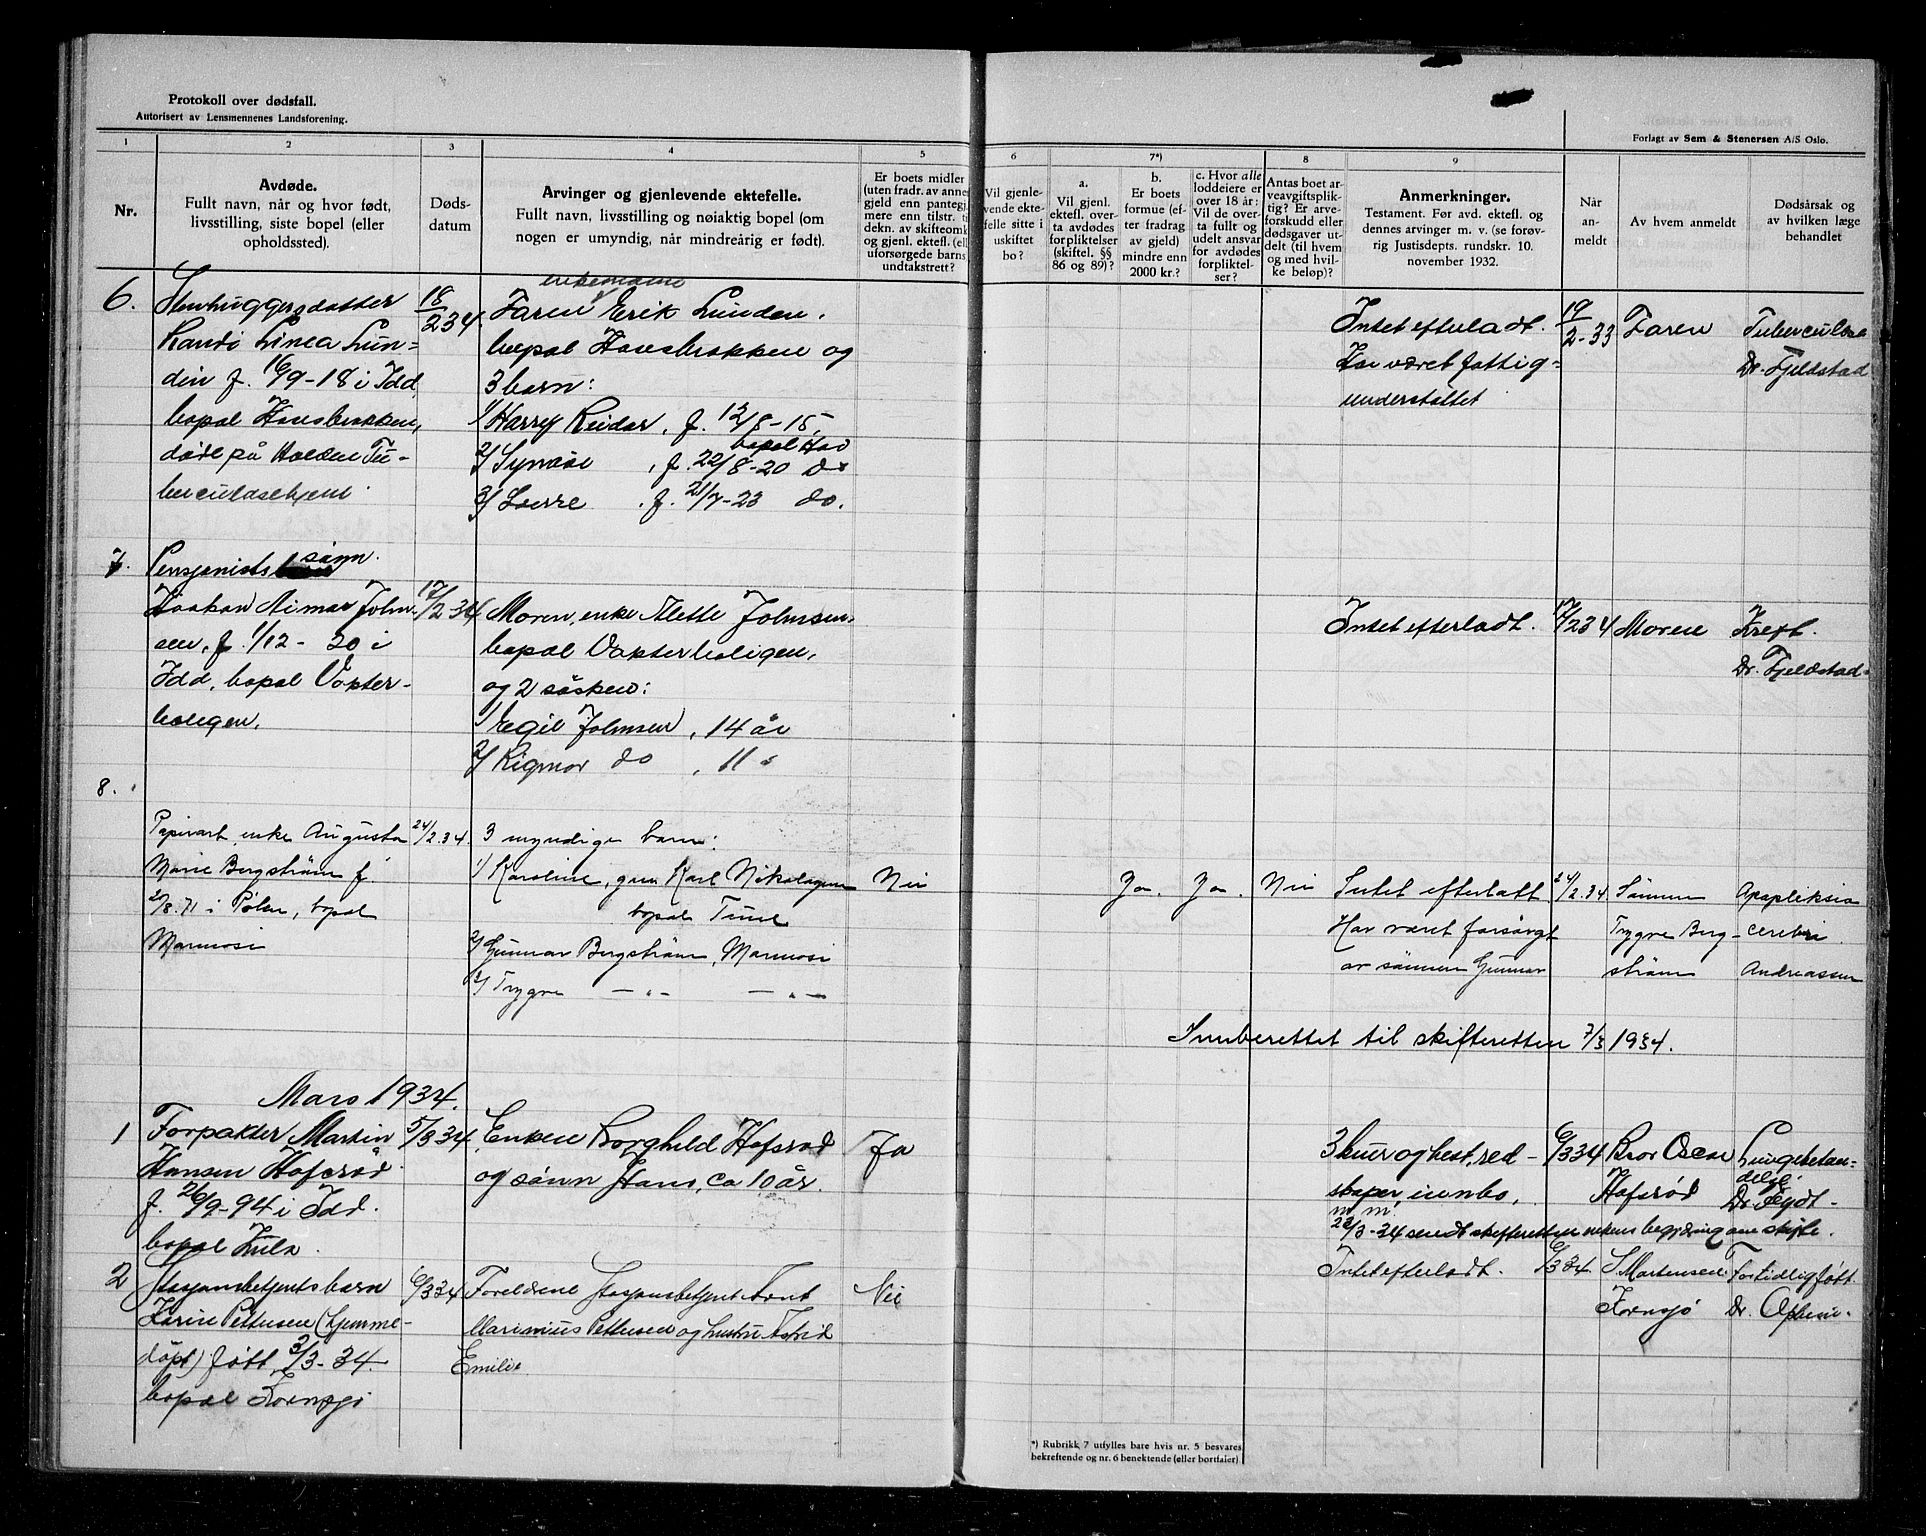 Protokoll over dødsfall.
Autorisert av Lensmennenes Landsforening.
Forlagt av Sem & Stenersen A/S Oslo.
1
2
3
4
5
6
7*)
8
9
Nr.
Avdøde.
Fullt navn, når og hvor født,
livsstilling, siste bopel (eller
opholdssted).
Døds-
datum
Arvinger og gjenlevende ektefelle.
Fullt navn, livsstilling og nøiaktig bopel (om
nogen er umyndig, når mindreårig er født).
Er boets midler
(uten fradr. av anne
gjeld enn pantegj
mere enn tilstr. ti
dekn. av skifteomk
og gjenl. ektef. (ell
uforsørgede barns
undtakstrett?
Vil gjenle-
vende ekte-
felle sitte i
uskiftet
bo?
a.
Vil gjenl.
ektefl. over-
ta avdødes
forpliktelser
(skiftel. §§
86 og 89)?
b.
Er boets
formue (ef-
ter fradrag
av gjeld)
mindre enn
2000 kr.?
c. Hvor alle
loddeiere er
over 18 år:
Vil de over-
ta fullt og
udelt ansvar
for avdødes
forpliktel-
ser?
Antas boet ar-
veavgiftsplik-
tig? Er arve-
forskudd eller
dødsgaver ut-
delt (til hvem
og med hvil-
ke beløp)?
Anmerkninger.
Testament. Før avd. ektefl. og
dennes arvinger m. v. (se forøv-
rig Justisdepts. rundskr. 10.
november 1932.
Når
an-
meldt
Av hvem anmeldt
Dødsårsak og
av hvilken læge
behandlet
6.
Stenhuggersdatter
Randi Linea Lun-
din f. 16/9-18 i Idd,
bopal Hovsbrokken,
døde på Halden Tu-
berculosehjem.
18/2 34.
enkemann
Faren Erik Lunden,
bopal Hovsbrokken og
3 barn:
1/ Harry Reidar, f. 12/8-15,
bopal Hov
2/ Synøve, f. 22/8-20 do
3/ Sverre, f. 21/7-23 do.
Intet efterladt.
Har været fattig-
understøttet
19/2-33
Faren
Tuberculose
Dr. Fjeldstad
7.
Pensjonists sønn.
Haakon Aimar John-
sen, f. 1/12-20 i
Idd, bopal Vokter-
boligen.
17/2-34
Moren, enke Alette Johnsen
bopal Vokterboligen,
og 2 søsken:
1/ Egil Johnsen, 14 år
2/ Rigmor do, 11 "
Intet efterladt.
17/2 34
Moren
Kreft.
Dr. Fjeldstad
8.
Papirarb. enke Augusta
Marie Bergstrøm f.
2/8.71 i , bopal
24/2.34.
3 myndige barn:
1/ Karoline, gm Karl Nikolaysen
bopal Tune
2/ Gunnar Bergstrøm,
3/ Trygve — " — — " —
Nei
Ja.
Ja.
Nei
Intet efterlatt
Har været forsørgt
av sønnen Gunnar
24/2.34
Sønnen
Trygve Berg-
strøm
Apopleksia
cerebri.
Andreassen
Innberettet til skifteretten 7/3 1934.
Mars 1934.
1
Forpakter Martin
Hansen Hofsrød
f. 26/9-94 i Idd.
bopal
5/3 34
Enken Borghild Hofsrød
og sønn Hans, ca 10 år.
Ja
3 kuer og hest, red-
skaper innbo,
m. m.
22/3-34 sendt skifteretten enkens begjæring om skifte.
6/3 34
Bror Oscar
Hofsrød
Lungebetæn-
delse
Dr.
2
Stasjonsbetjents barn
Karin Pettersen (hjemme-
døpt) født 3/3-34.
bopal Kornsjø
6/3 34
Foreldrene Stasjonsbetjent
Marinius Pettersen og hustru Astrid
Emilie
Nei
Intet efterladt.
6/3 34.
S Martensen
Kornsjø
For tidlig født
Dr.
*) Rubrikk 7 utfylles bare hvis nr. 5 besvares
bekreftende og nr. 6 benektende (eller bortfaler)